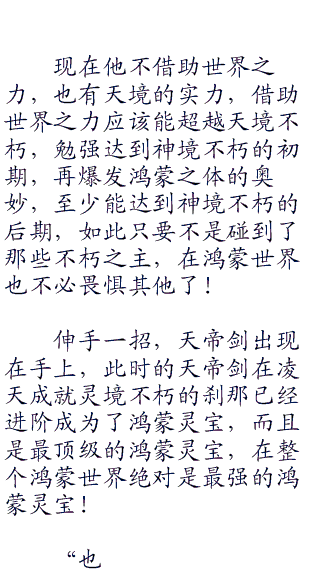 现在他不借助世界之
力，也有天境的实力，借助
世界之力应该能超越天境不
朽，勉强达到神境不朽的初
期，再爆发鸿蒙之体的奥
妙，至少能达到神境不朽的
后期，如此只要不是碰到了
那些不朽之主，在鸿蒙世界
也不必畏惧其他了！
伸手一招，天帝剑出现
在手上，此时的天帝剑在凌
天成就灵境不朽的刹那已经
进阶成为了鸿蒙灵宝，而且
是最顶级的鸿蒙灵宝，在整
个鸿蒙世界绝对是最强的鸿
蒙灵宝！
“也